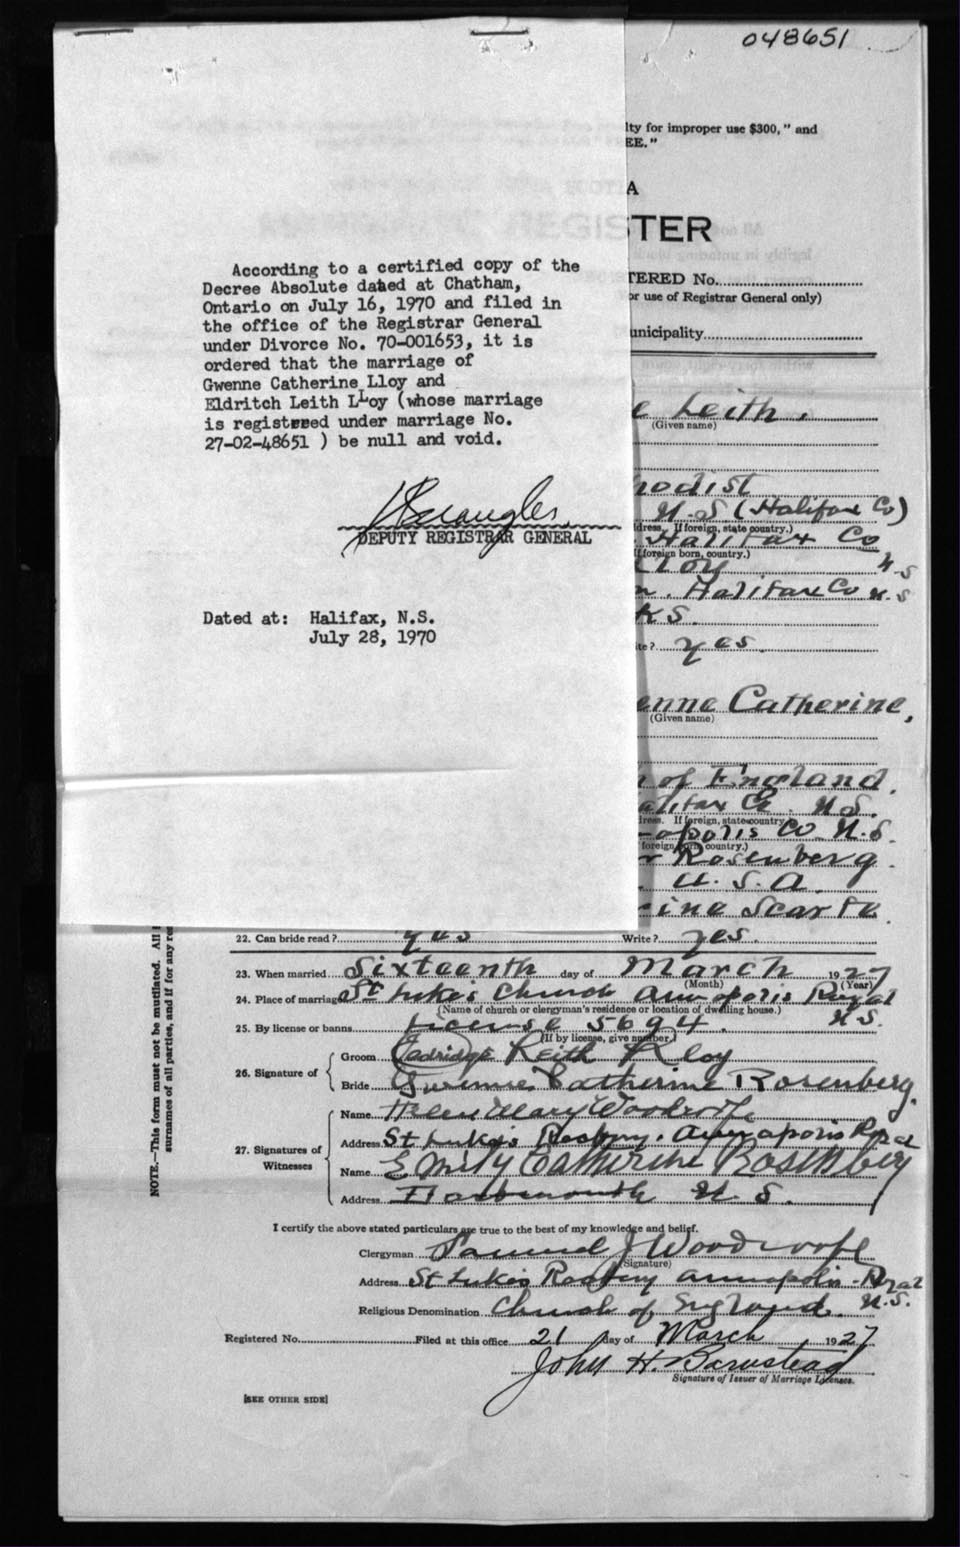 048651
lty for improper use $300," and
EE."
A
TER
TERED No.
or use of Registrar General only)
unicipality
According to a certified copy of the
Decree Absolute dated at Chatham,
Ontario on July 16, 1970 and filed in
the office of the Registrar General
under Divorce No. 70-001653, it is
ordered that the marriage of
Gwenne Catherine Lloy and
Eldritch Leith LLoy (whose marriage
is registered under marriage No.
27-02-48651 ) be null and void.
DEPUTY REGISTRAR GENERAL
Dated at: Halifax, N.S.
July 28, 1970
e Leith.
(Given name)
hodist
N.S (Halifax Co)
dress. If foreign, state country.)
Halifax Co
(If foreign born, country.)
Lloy N.S
n. Halifax Co N.S
ks.
ite? yes.
enne Catherine,
(Given name)
h of England.
alifax Co. N.S.
dress. If foreign, state country
apolis Co. N.S.
foreign born country.)
r Rosenberg.
U.S.A.
rine Scarfe.
22. Can bride read? yes Write? yes.
23. When married Sixteenth day of March 1927
(Month) (Year)
24. Place of marriage St Luke's Church Annapolis Royal
(Name of church or clergyman's residence or location of dwelling house.) N.S.
25. By license or banns License 5694.
(If by license, give number.)
26. Signature of
Groom Leith Lloy
Bride Gwenne Catherine Rosenberg.
27. Signatures of Witnesses
Name Helen Mary Woodroofe
Address St Luke's Rectory. Annapolis Royal
Name Emily Catherine Rosenberg
Address Dartmouth N.S.
I certify the above stated particulars are true to the best of my knowledge and belief.
Clergyman Samuel J Woodroofe
(Signature)
Address St Luke's Rectory Annapolis-Royal
N.S.
Religious Denomination Church of England.
Registered No. Filed at this office 21 day of March 1927
John H. Barnstead
Signature of Issuer of Marriage Licenses.
[SEE OTHER SIDE]
NOTE.—This form must not be mutilated. All
surnames of all parties, and if for any re